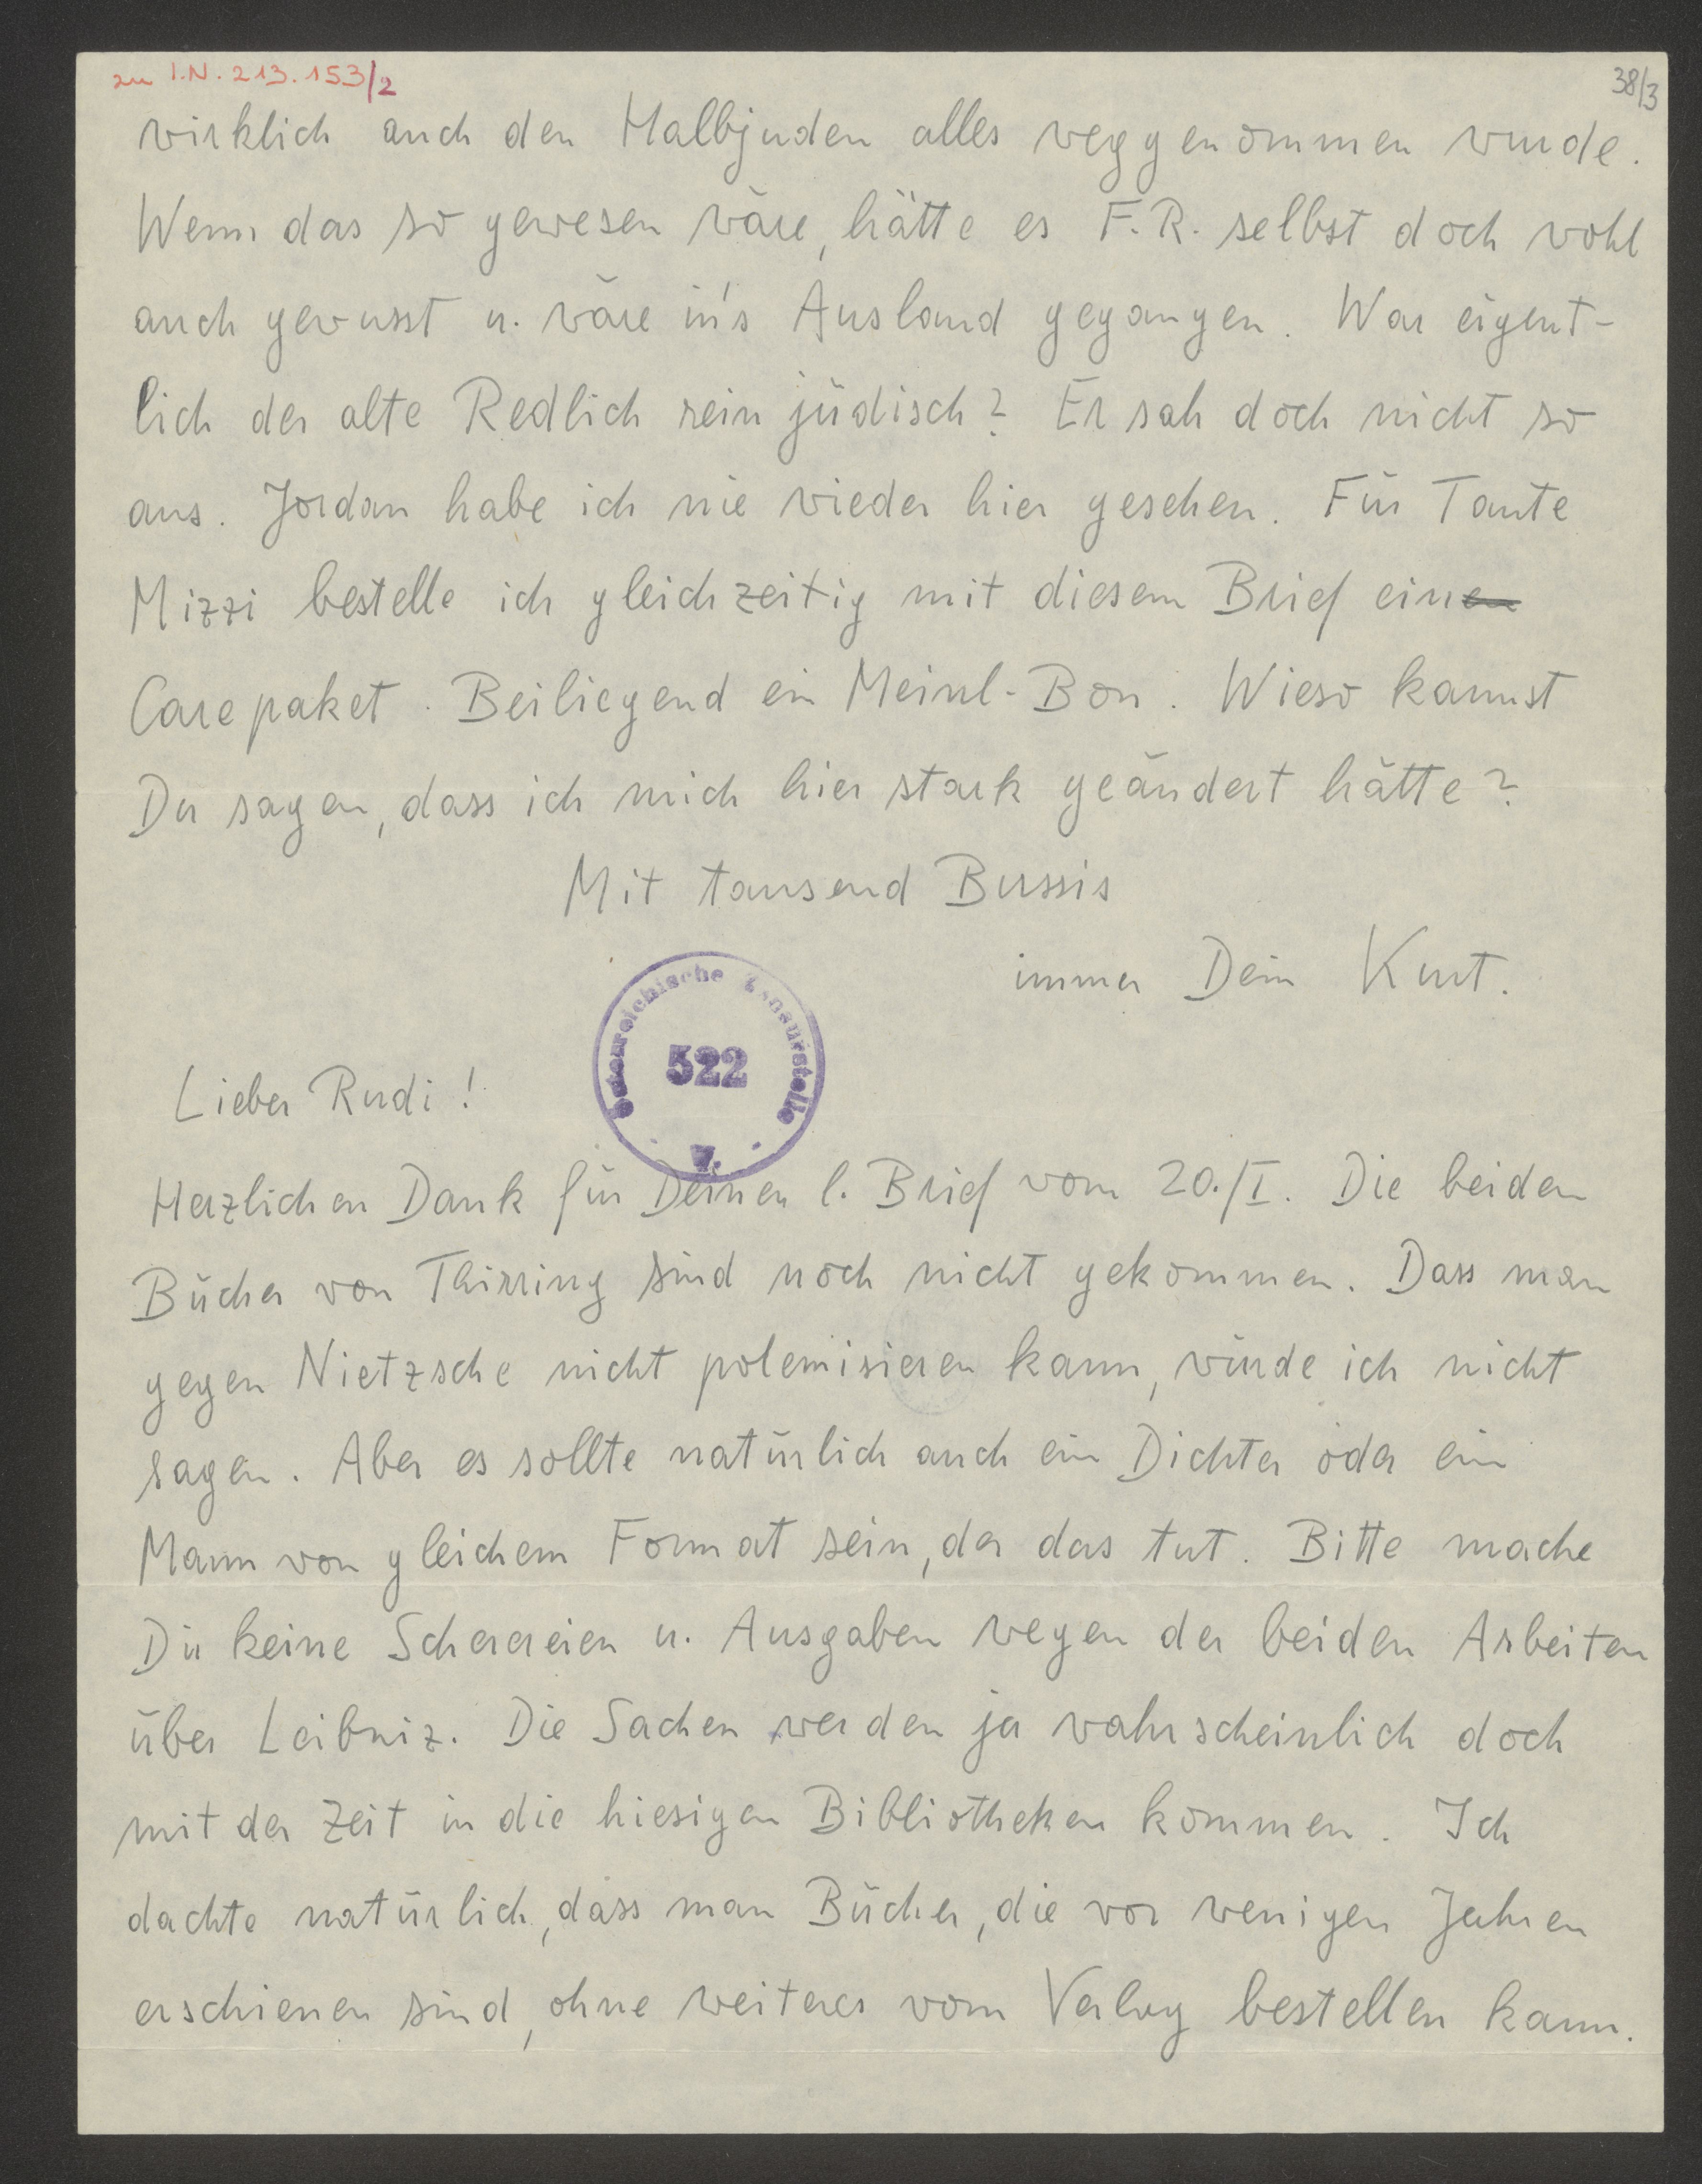 zu I.N. 213.153/2
38/3
wirklich auch den Halbjuden alles weggenommen wurde.
Wenn das so gewesen wäre, hätte es F.R. selbst doch wohl
auch gewusst u. wäre in's Ausland gegangen. War eigent-
lich der alte Redlich rein jüdisch? Er sah doch nicht so
aus. Jordan habe ich nie wieder hier gesehen. Für Tante
Mizzi bestelle ich gleichzeitig mit diesem Brief einen
Carepaket. Beiliegend ein Meinl-Bon. Wieso kannst
Du sagen, dass ich mich hier stark geändert hätte?
Mit tausend Bussis
immer Dein Kurt.
Österreichische Zensurstelle
522
Lieber Rudi!
Herzlichen Dank für Deinen l. Brief vom 20./I. Die beiden
Bücher von Thirring sind noch nicht gekommen. Dass man
gegen Nietzsche nicht polemisieren kann, würde ich nicht
sagen. Aber es sollte natürlich auch ein Dichter oder ein
Mann von gleichem Format sein, der das tut. Bitte mache
Dir keine Scherereien u. Ausgaben wegen der beiden Arbeiten
über Leibniz. Die Sachen werden ja wahrscheinlich doch
mit der Zeit in die hiesigen Bibliotheken kommen. Ich
dachte natürlich, dass man Bücher, die vor wenigen Jahren
erschienen sind, ohne weiteres vom Verlag bestellen kann.